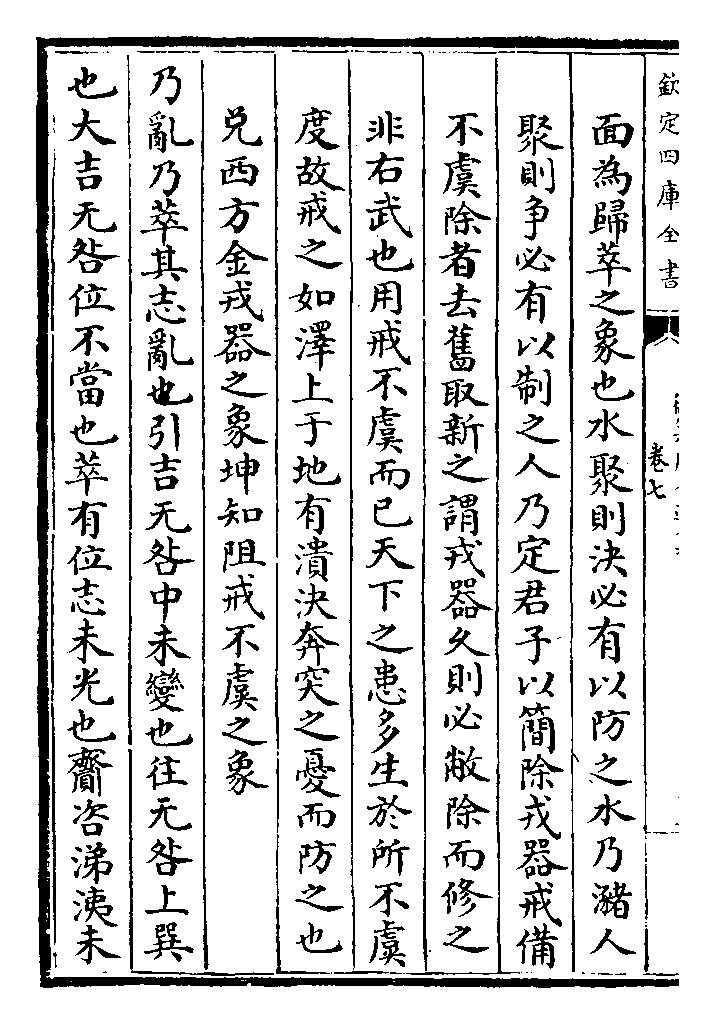 欽定四庫全書
卷七
面為歸萃之象也水聚則決必有以防之水乃瀦人
聚則争必有以制之人乃定君子以簡除戎器戒備
不虞除者去舊取新之謂戎器久則必敝除而修之
非右武也用戒不虞而已天下之患多生於所不虞
度故戒之如澤上于地有潰決奔突之憂而防之也
兌西方金戎器之象坤知阻戒不虞之象
乃亂乃萃其志亂也引吉无咎中未變也往无咎上巽
也大吉无咎位不當也萃有位志未光也齎咨涕洟未